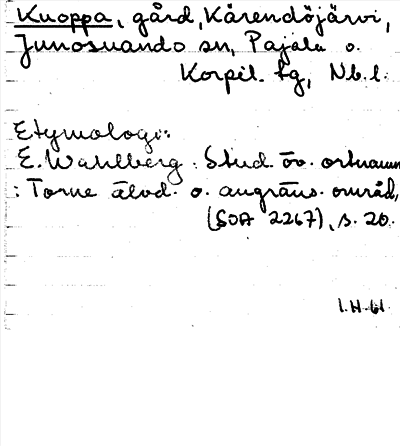 Kuoppa, gård, Kärendöjärvi,
Junosuando sn, Pajala o.
Korpil. tg, Nb. l.
Etymologi:
E. Wahlberg: Stud. öv. ortnamn
i Torne älvd. o. angräns. områd,
(SOA 2267), s. 20.